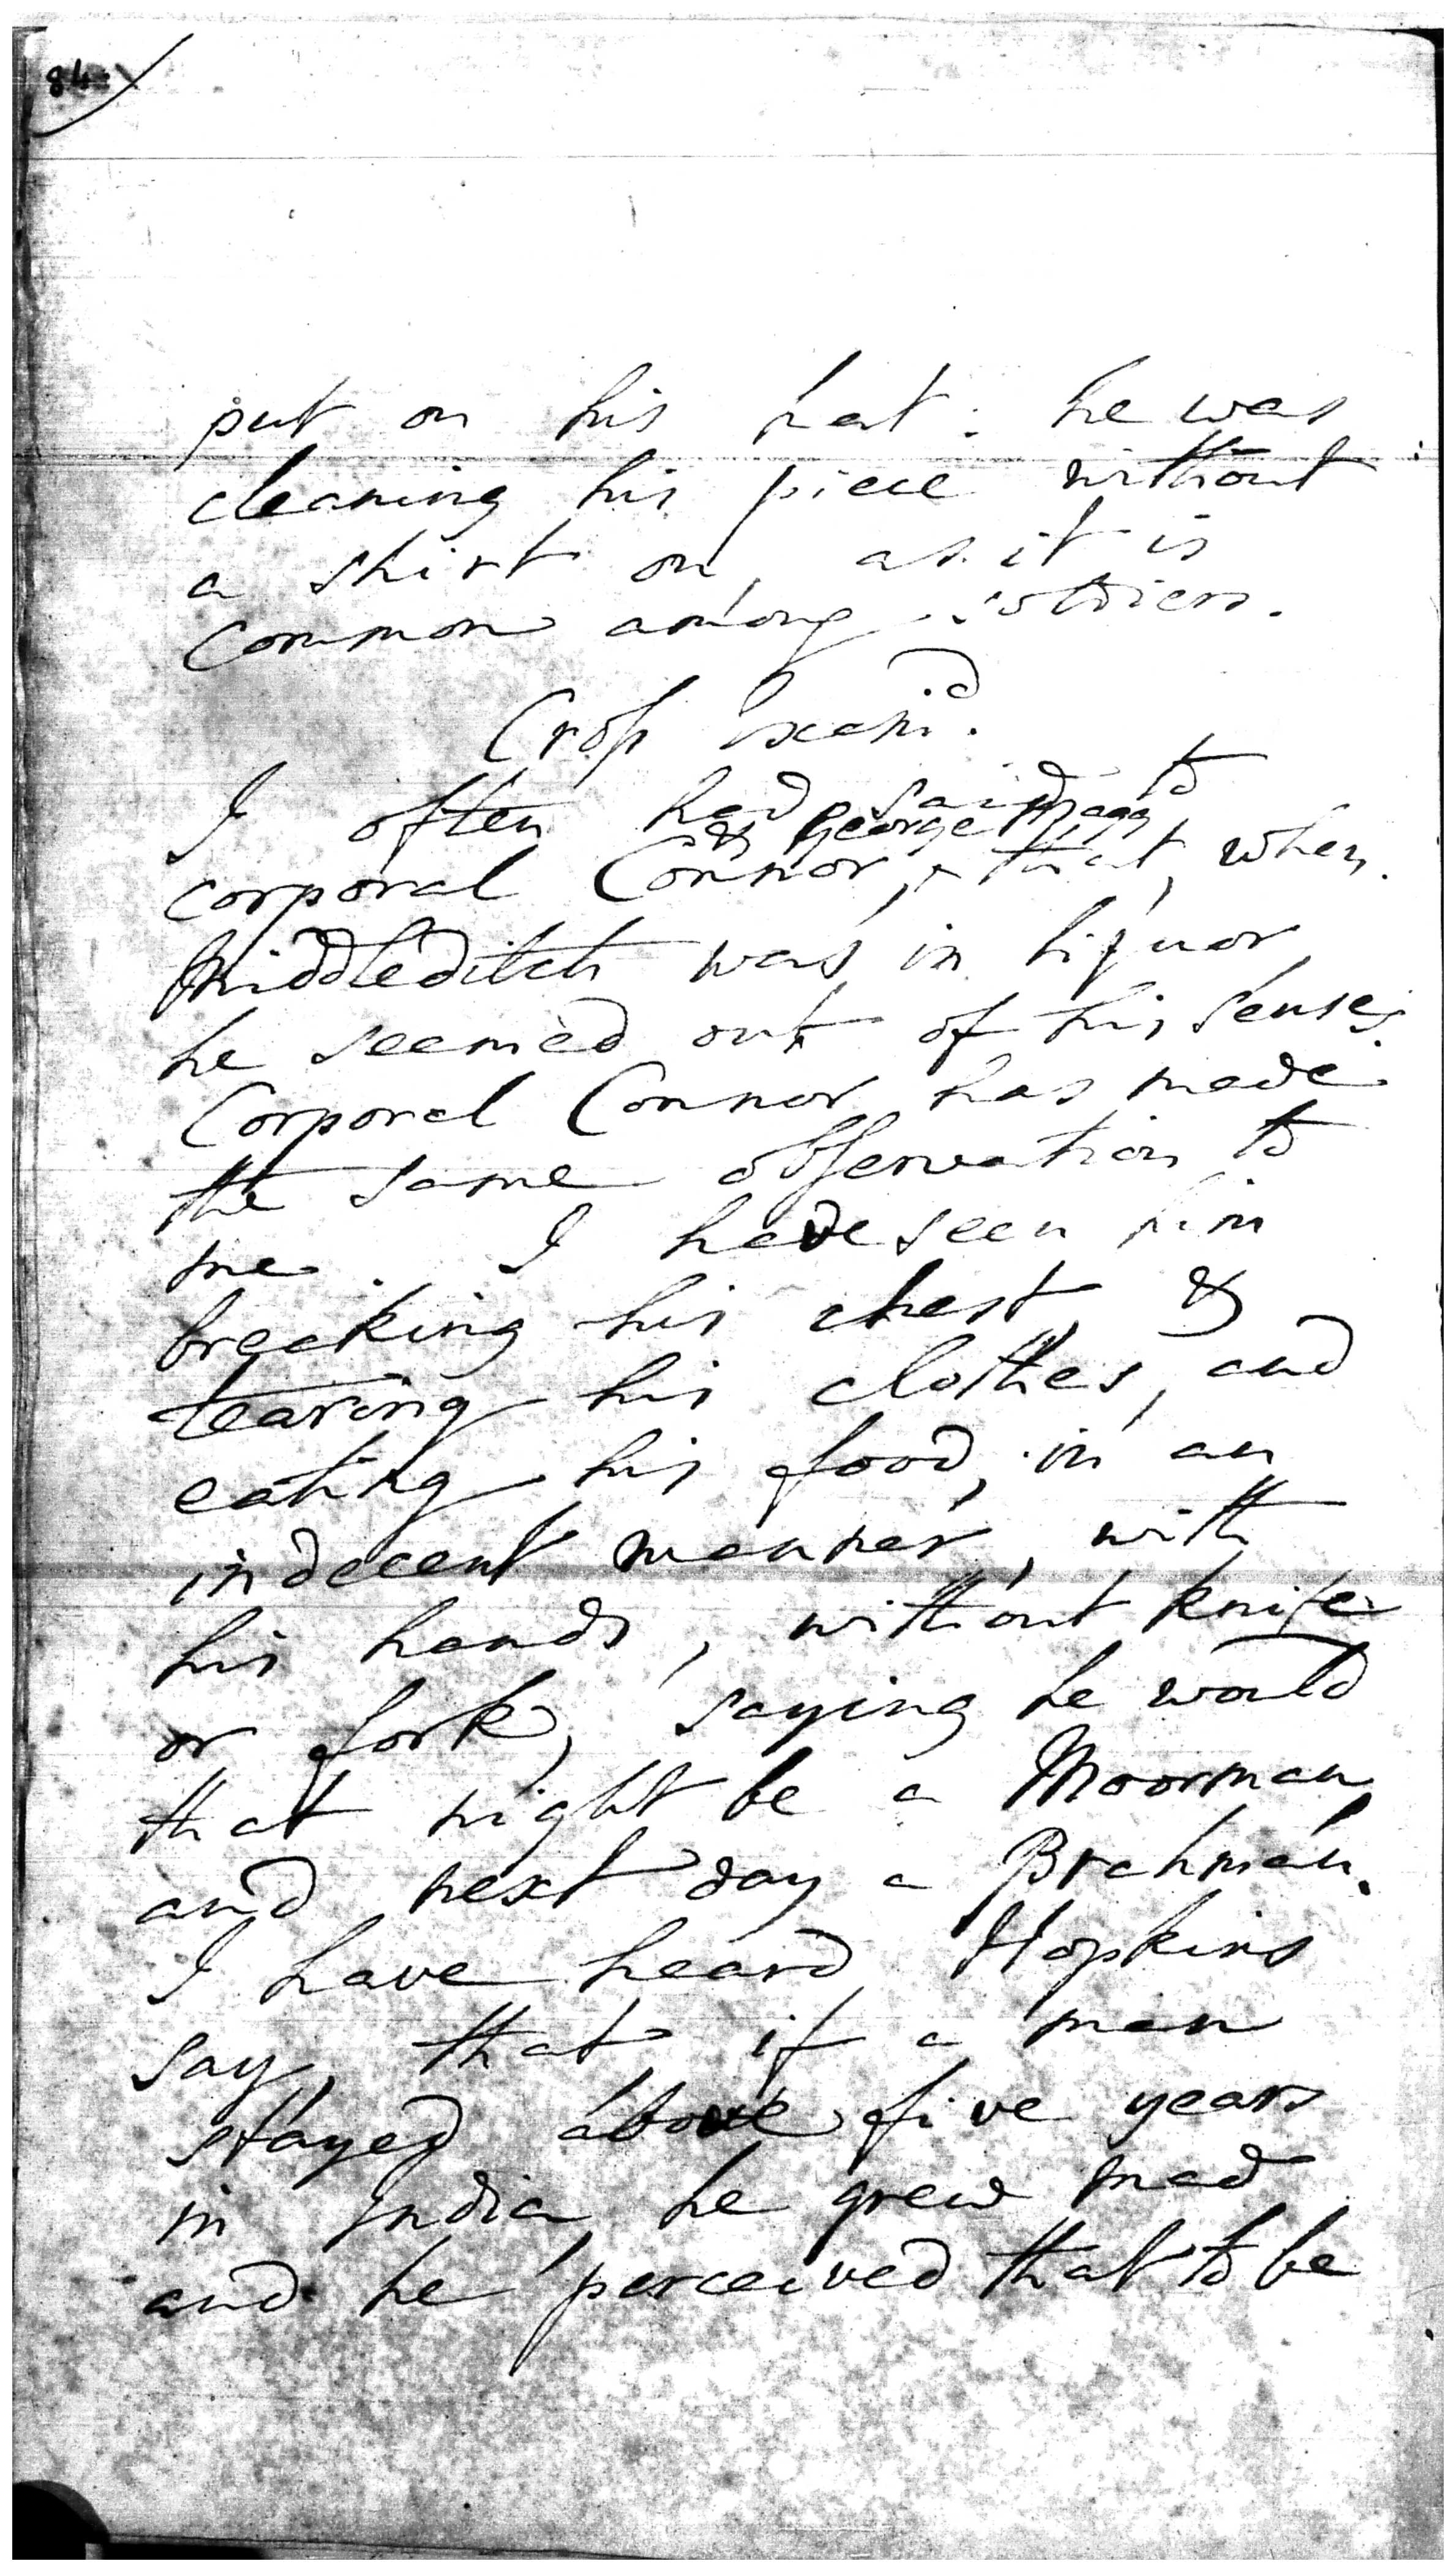 84
put on his hat: he was
cleaning his piece without
a shirt on, as it is
common among soldiers.
Cross exam.d
I often had said to
& George
corporal Connor, ^ that, when
Middleditch was in liquor,
he seemed out of his senses.
Corporal Connor has made
the same observation to
me. I have seen him
breaking his chest, &
tearing his clothes, and
eating his food, in an
indecent manner, with
his hands, without knife
or fork, saying he would
that night be a Moorman,
and next day a Brahman.
I have heard Hopkins
say, that if a man
stayed above five years
in India, he grew mad
and he perceived that to be